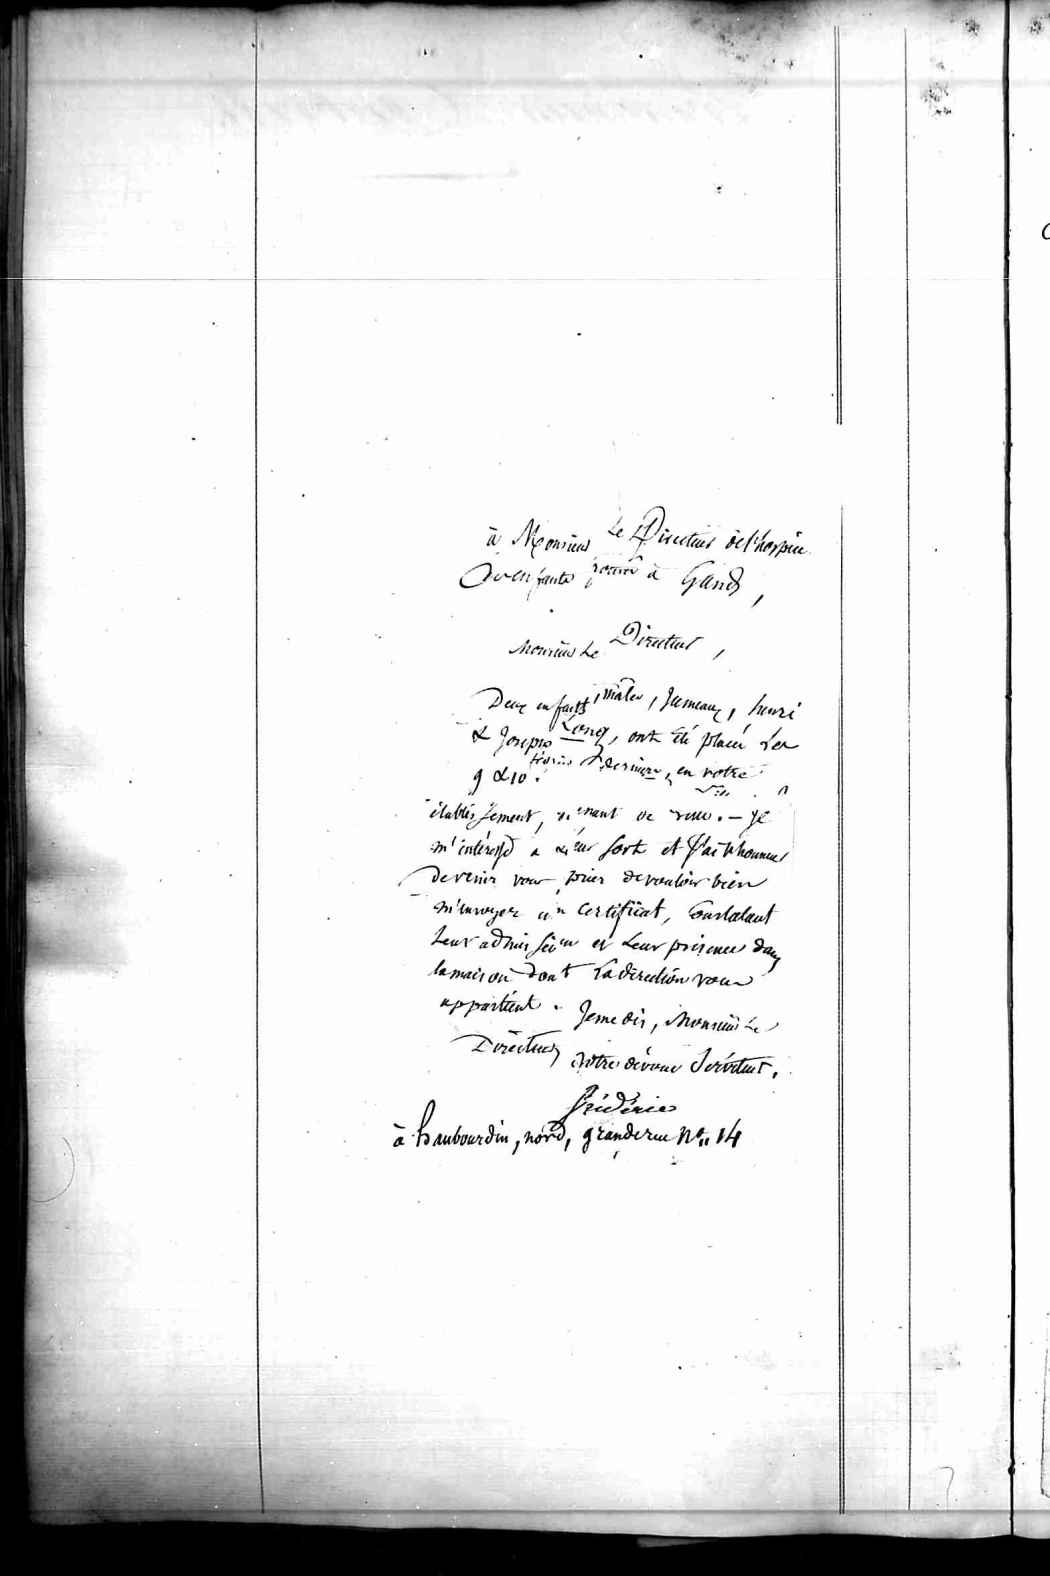 à Monsieur Le Directeur de l'hospice
Des enfants à Gand,
Monsieur Le Directeur,
Deux enfants, mâles, Jumeaux, henri
& Joseph Long, ont été placés les
9 & 10 février dernier, en votre
établissement, venant de . — Je
m'intéresse à Leur Sort et J'ai l'honneur
de venir vous prier de vouloir bien
m'envoyer un certificat, Constatant
Leur admission et Leur présence dans
la maison dont La direction vous
appartient. Je me dis, Monsieur Le
Directeur, votre dévoué Serviteur.
frédéric
à haubourdin, nord, grande rue No. 14